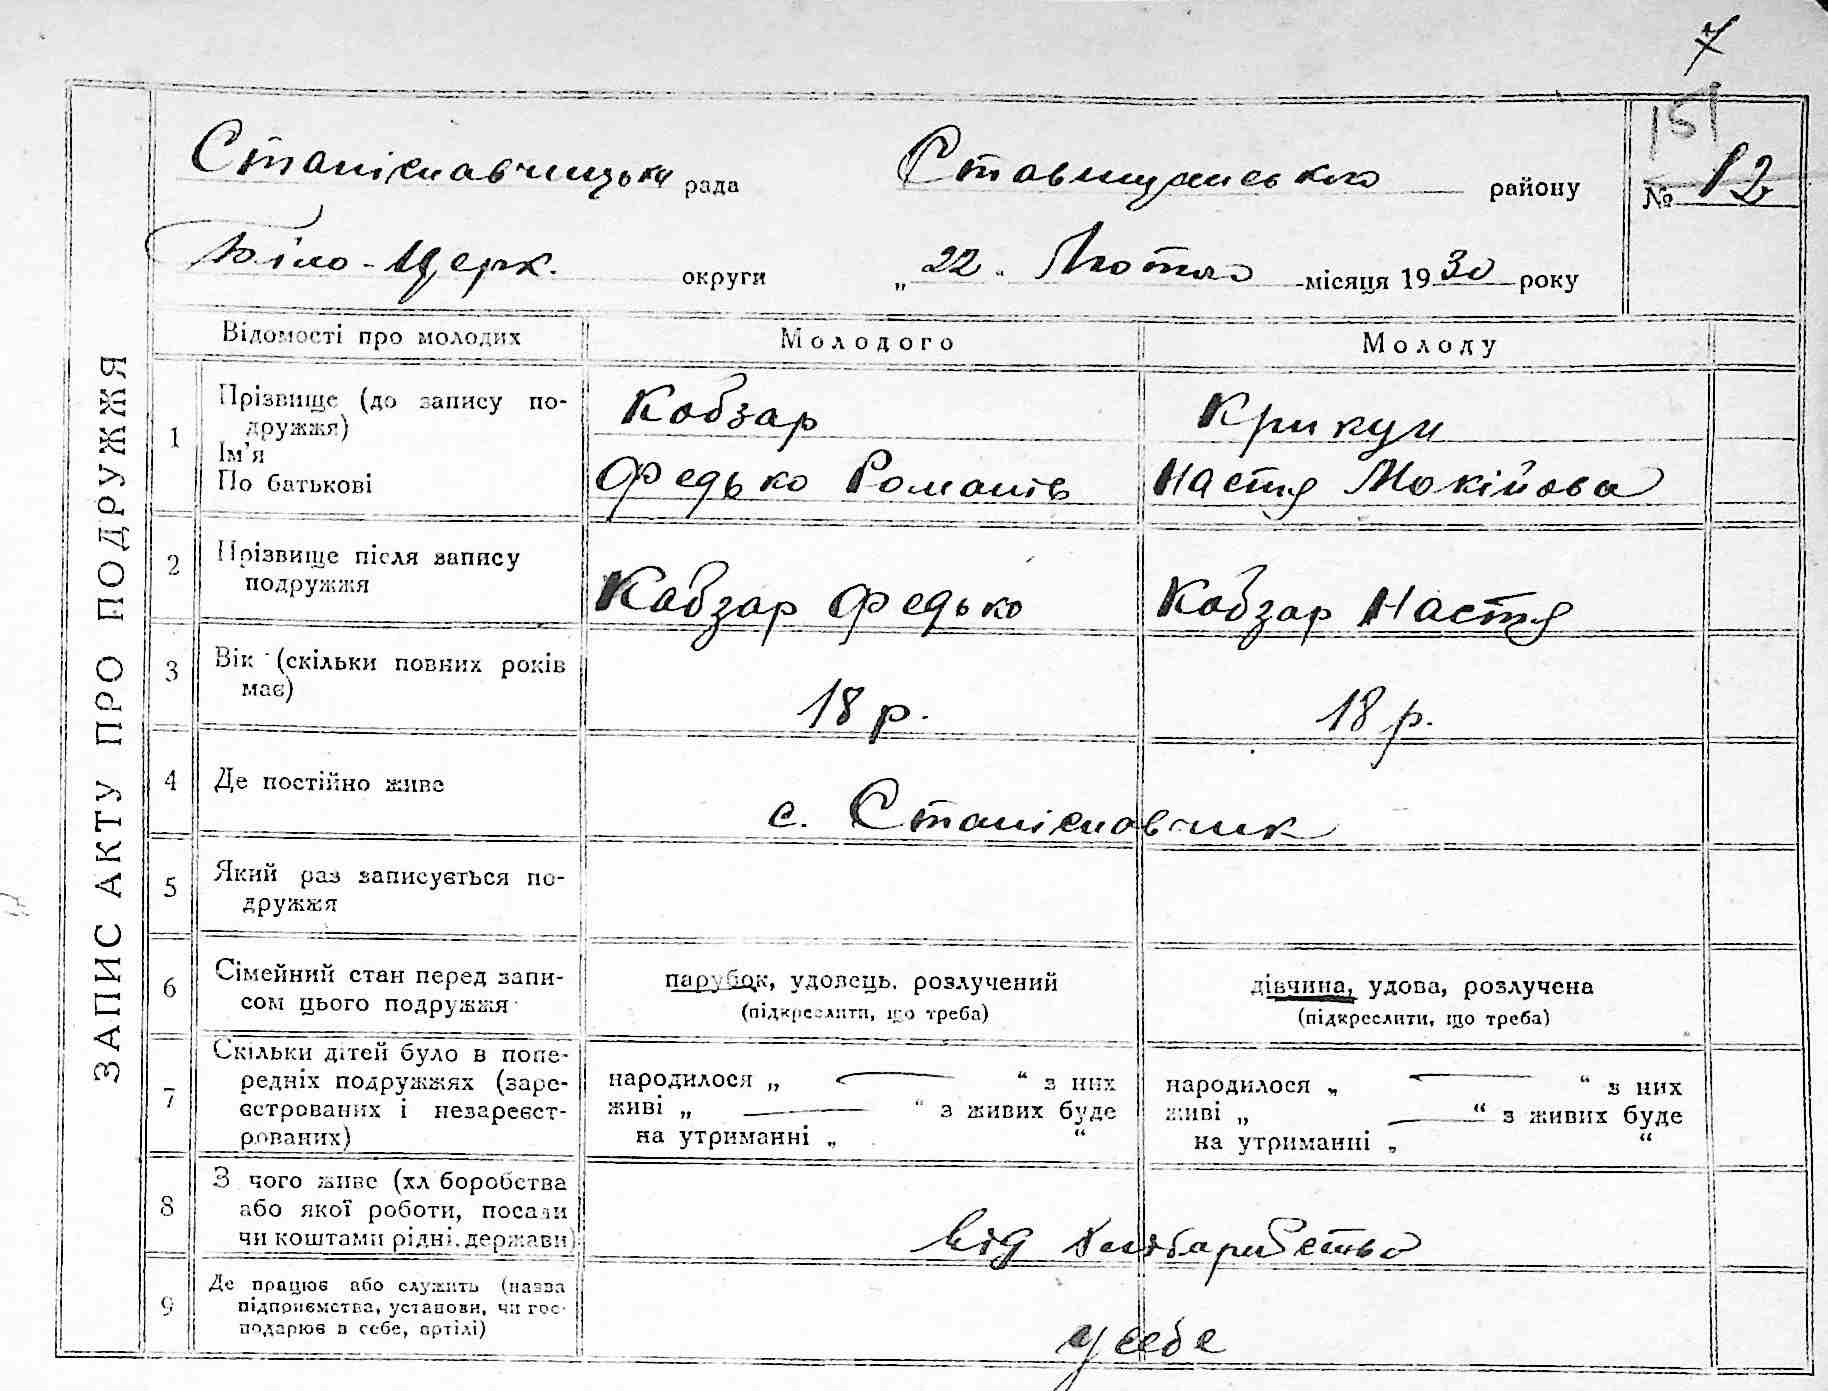 7
151
Станіславчицька рада Ставищанського району № 12
Біло-Церк. округи „22“ Лютого місяця 1930 року
ЗАПИС АКТУ ПРО ПОДРУЖЖЯ
Відомості про молодих Молодого Молоду
1 Прізвище (до запису по-
дружжя)
Ім'я
По батькові
Кобзар
Федько Романів
Крикун
Настя Мокійова
2 Прізвище після запису
подружжя
Кобзар Федько Кобзар Настя
3 Вік (скільки повних років
має)
18 р. 18 р.
4 Де постійно живе
с. Станіславчик
5 Який раз записується по-
дружжя
6 Сімейний стан перед запи-
сом цього подружжя
парубок, удовець, розлучений
(підкреслити, що треба)
дівчина, удова, розлучена
(підкреслити, що треба)
7 Скільки дітей було в попе-
редніх подружжях (заре-
єстрованих і незареєст-
рованих)
народилося „ — “ з них
живі „ — “ з живих буде
на утриманні „ “
народилося „ — “ з них
живі „ — “ з живих буде
на утриманні „ “
8 З чого живе (хліборобства
або якої роботи, посади
чи коштами рідні, держави)
Від
9 Де працює або служить (назва
підприємства, установи, чи гос-
подарює в себе, артілі)
у себе